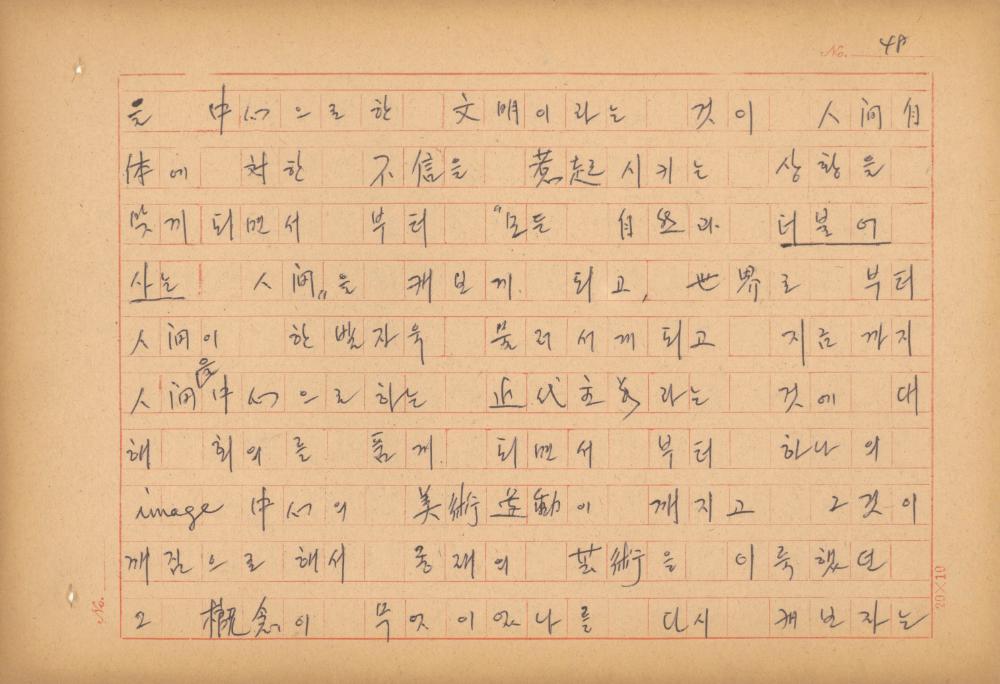 No. 48
을 中心으로한 文明이라는 것이 人间自
体에 対한 不信을 惹起시키는 상황을
맞게되면서 부터 "모든 自然과 더불어
사는 人间"을 캐보게 되고, 世界로 부터
人间이 한발자욱 물러서게되고 지금까지
人间을中心으로하는 近代主義라는 것에 대
해 회의를 품게 되면서 부터 하나의
image 中心의 美術運動이 깨지고 그것이
깨짐으로 해서 종래의 芸術을 이룩했던
그 概念이 무엇이었나를 다시 캐보자는
20×10
No.